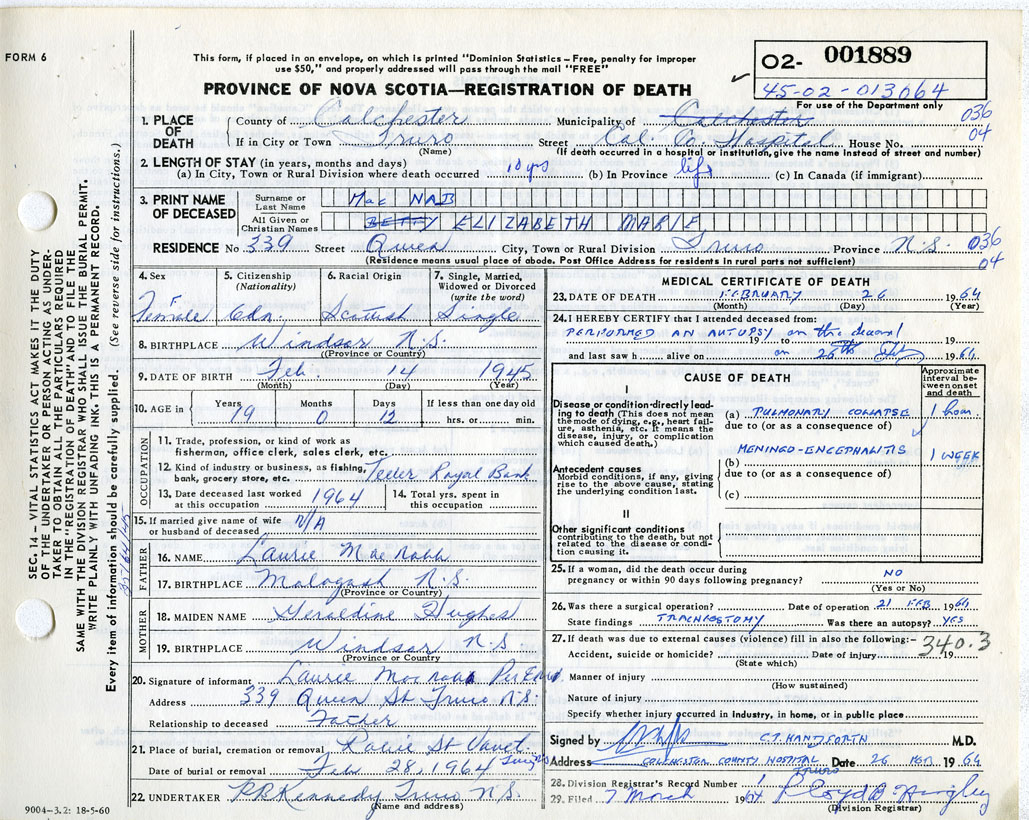 FORM 6
This form, if placed in an envelope, on which is printed "Dominion Statistics – Free, penalty for improper
use $50," and properly addressed will pass through the mail "FREE"
PROVINCE OF NOVA SCOTIA—REGISTRATION OF DEATH
02- 001889
45-02-013064
For use of the Department only
1. PLACE OF DEATH
County of Colchester Municipality of Colchester 036
If in City or Town Truro Street Col. Co. Hospital House No. 04
(Name) (If death occurred in a hospital or institution, give the name instead of street and number)
2. LENGTH OF STAY (in years, months and days)
(a) In City, Town or Rural Division where death occurred 10 yrs (b) In Province life (c) In Canada (if immigrant)
3. PRINT NAME OF DECEASED
Surname or Last Name Mac NAB
All Given or Christian Names BETTY ELIZABETH MARIE
RESIDENCE No 339 Street Queen City, Town or Rural Division Truro Province N.S. 036
(Residence means usual place of abode. Post Office Address for residents in rural parts not sufficient) 04
4. Sex Female F
5. Citizenship (Nationality) Cdn.
6. Racial Origin Scottish
7. Single, Married, Widowed or Divorced (write the word) Single
8. BIRTHPLACE Windsor N.S.
(Province or Country)
9. DATE OF BIRTH Feb. 14 1945
(Month) (Day) (Year)
10. AGE in Years Months Days If less than one day old
19 0 12 hrs. or min.
OCCUPATION
11. Trade, profession, or kind of work as
fisherman, office clerk, sales clerk, etc.
12. Kind of industry or business, as fishing,
bank, grocery store, etc. Teller Royal Bank
13. Date deceased last worked at this occupation 1964
14. Total yrs. spent in this occupation
15. If married give name of wife or husband of deceased N/A
FATHER
16. NAME Laurie MacNabb
17. BIRTHPLACE Malagash N.S.
(Province or Country)
MOTHER
18. MAIDEN NAME Geraldine Hughes
19. BIRTHPLACE Windsor N.S
(Province or Country
20. Signature of informant Laurie MacNabb
Address 339 Queen St Truro N.S.
Relationship to deceased Father
21. Place of burial, cremation or removal Robie St
Date of burial or removal Feb 28, 1964 Truro
22. UNDERTAKER Kennedy Truro N.S.
(Name and address)
MEDICAL CERTIFICATE OF DEATH
23. DATE OF DEATH FEBRUARY 26 1964
(Month) (Day) (Year)
24. I HEREBY CERTIFY that I attended deceased from:
PERFORMED AN AUTOPSY on the deceased
19 to 19
and last saw h alive on on 26th 1964
CAUSE OF DEATH
Approximate interval between onset and death
I
Disease or condition directly leading to death (This does not mean the mode of dying, e.g., heart failure, asthenia, etc. It means the disease, injury, or complication which caused death.)
(a) PULMONARY COLLAPSE 1 hour
due to (or as a consequence of)
Antecedent causes
Morbid conditions, if any, giving rise to the above cause, stating the underlying condition last.
(b) MENINGO-ENCEPHALITIS 1 WEEK
due to (or as a consequence of)
(c)
II
Other significant conditions contributing to the death, but not related to the disease or condition causing it.
25. If a woman, did the death occur during
pregnancy or within 90 days following pregnancy? NO
(Yes or No)
26. Was there a surgical operation? Date of operation 21 FEB 1964
State findings TRACHEOSTOMY Was there an autopsy? YES
27. If death was due to external causes (violence) fill in also the following:– 340.3
Accident, suicide or homicide? Date of injury 19
(State which)
Manner of injury
(How sustained)
Nature of injury
Specify whether injury occurred in Industry, in home, or in public place
Signed by M.D.
Address COLCHESTER COUNTY HOSPITAL Truro Date 26 FEB 1964
28. Division Registrar's Record Number
29. Filed 7 March 1964
(Division Registrar)
9004–3.2: 18-5-60
SEC. 14 — VITAL STATISTICS ACT MAKES IT THE DUTY
OF THE UNDERTAKER OR PERSON ACTING AS UNDERTAKER TO OBTAIN ALL THE PARTICULARS REQUIRED
IN THE "REGISTRATION OF DEATH" AND TO FILE THE
SAME WITH THE DIVISION REGISTRAR WHO SHALL ISSUE THE BURIAL PERMIT.
WRITE PLAINLY WITH UNFADING INK. THIS IS A PERMANENT RECORD.
Every item of information should be carefully supplied. (See reverse side for instructions.)